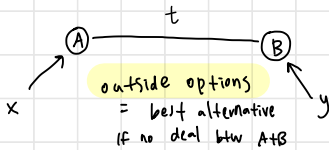 t
A B
outside options
x = best alternative y
if no deal btw A+B